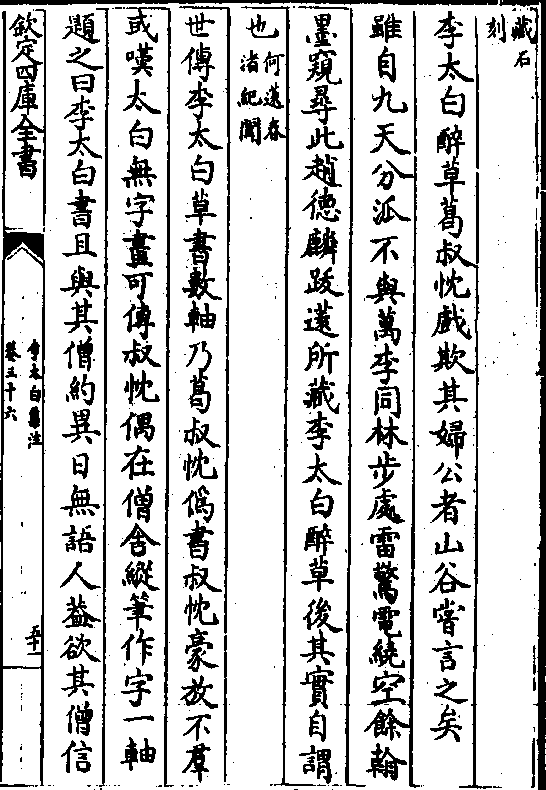 藏石
刻
李太白醉草葛叔忱戲欺其婦公者山谷嘗言之矣
雖自九天分派不與萬李同林步處雷驚電繞空餘翰
墨窺尋此趙德麟跋薳所藏李太白醉草後其實自謂
也何薳春
渚紀聞
世傳李太白草書數軸乃葛叔忱偽書叔忱豪放不羣
或嘆太白無字畫可傳叔忱偶在僧舍縱筆作字一軸
題之曰李太白書且與其僧約異日無語人葢欲其僧信
欽定四庫全書
李太白集注
卷三十六
五十一